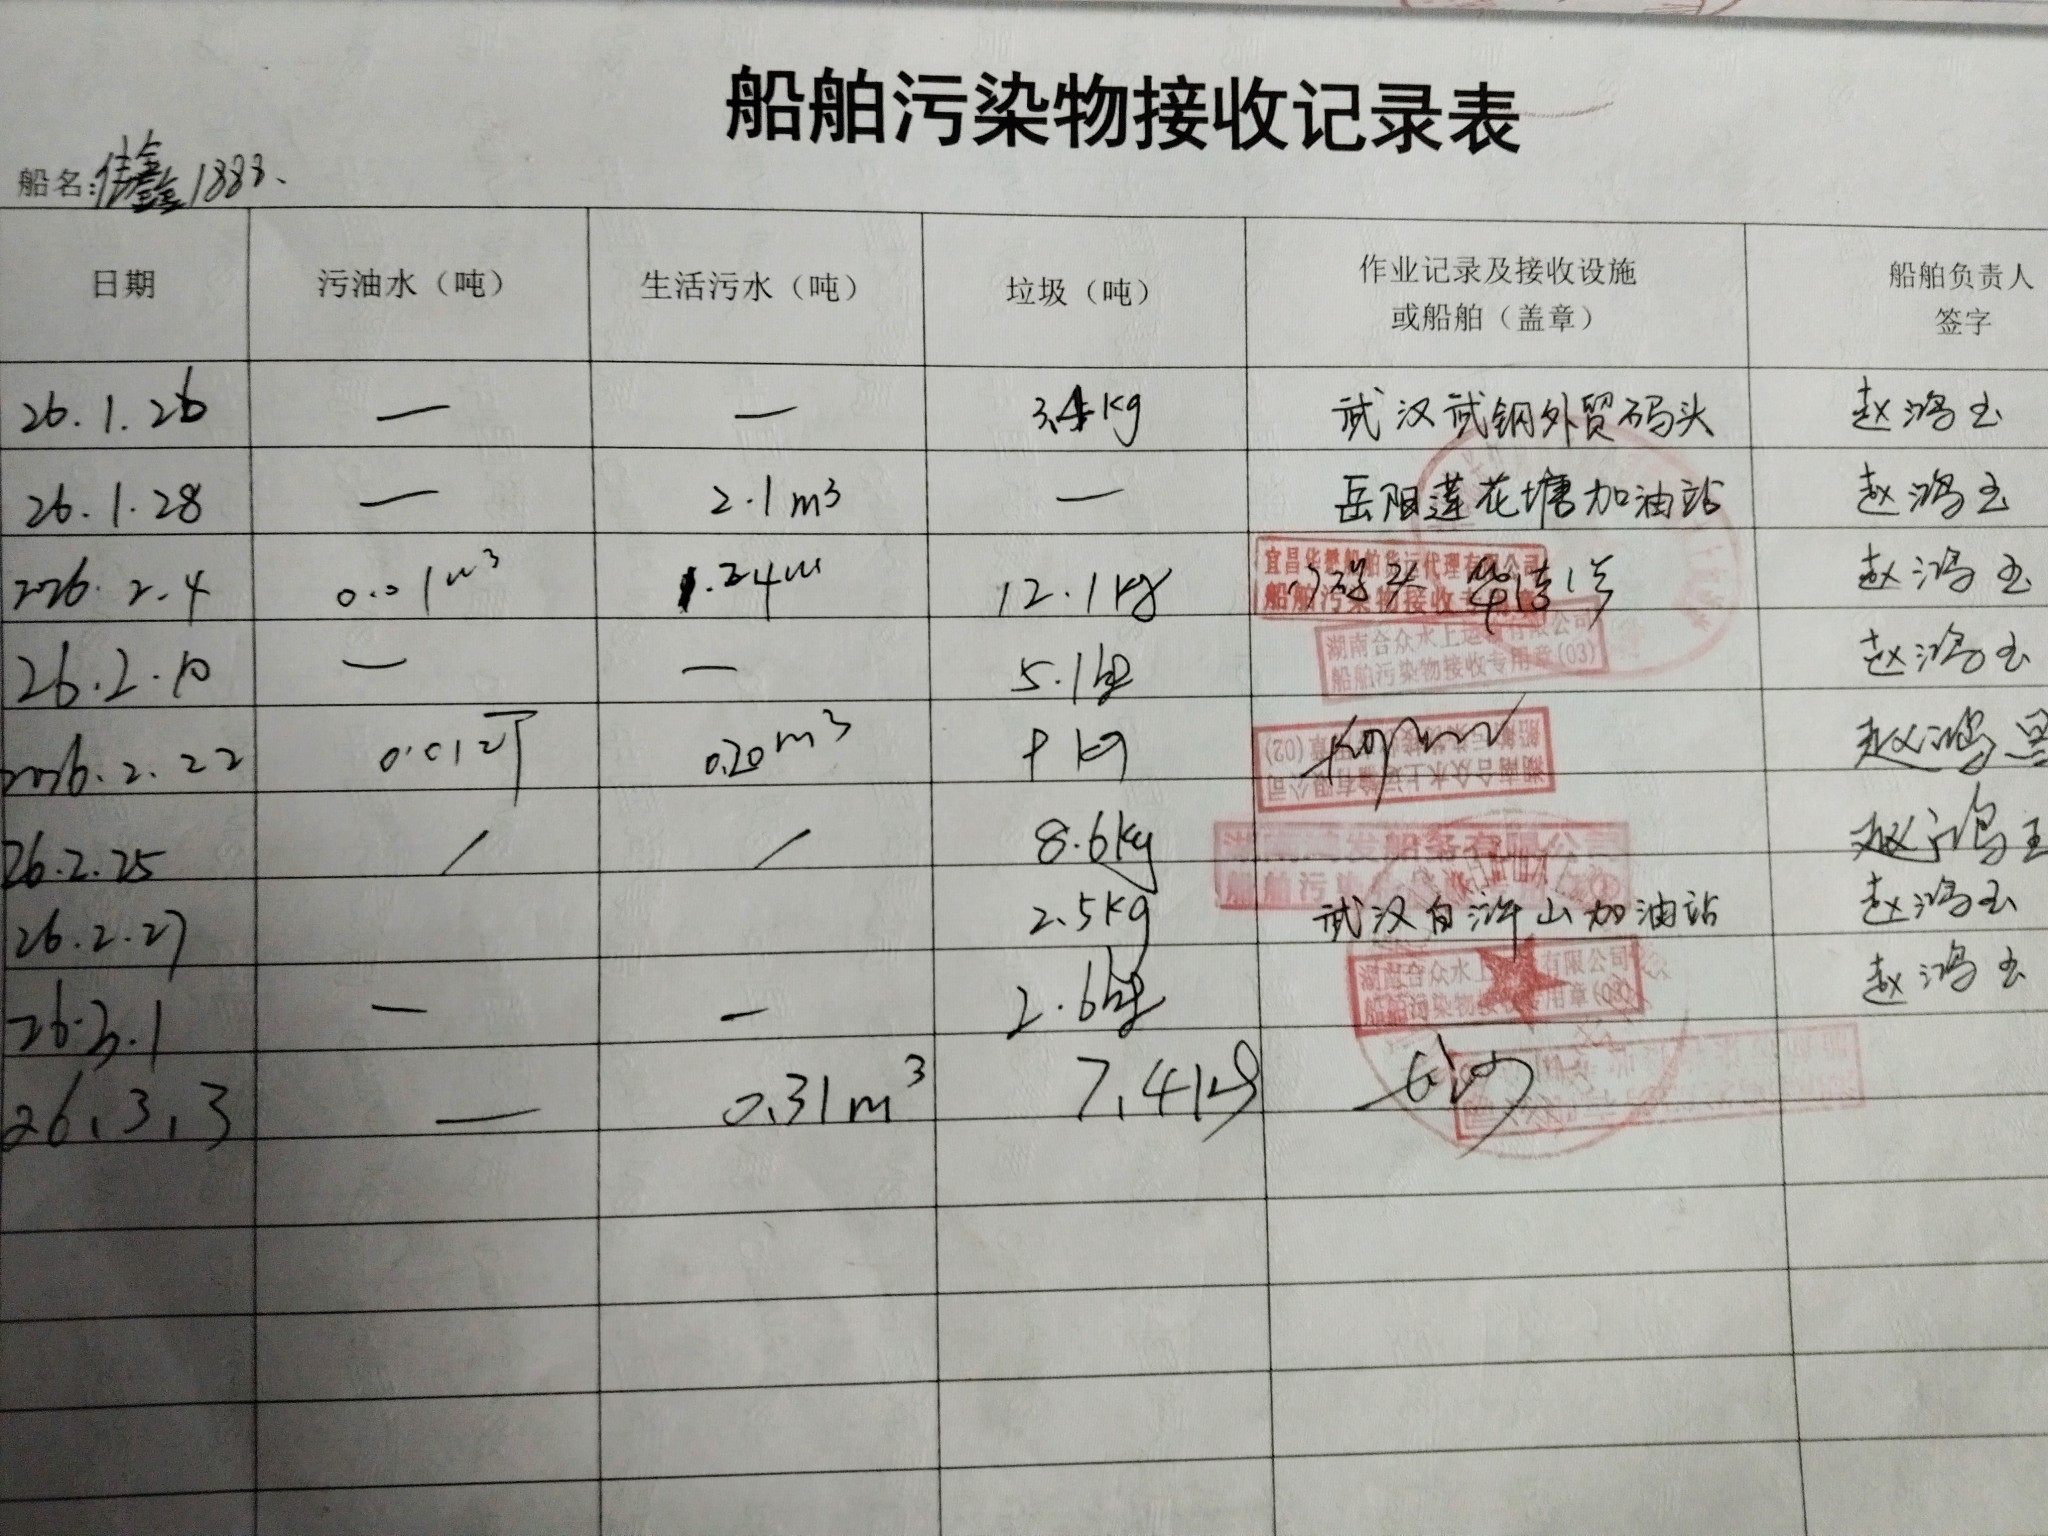 船舶污染物接收记录表
船名: 佳鑫1888.
日期 污油水（吨） 生活污水（吨） 垃圾（吨） 作业记录及接收设施或船舶（盖章） 船舶负责人签字
26.1.26 — — 3.4kg 武汉武钢外贸码头 赵鸿玉
26.1.28 — 2.1m³ — 岳阳莲花塘加油站 赵鸿玉
2026.2.4 0.01m³ 1.24m 12.1kg 赵鸿玉
宜昌华懋船舶货运代理有限公司
船舶污染物接收专用章
26.2.10 — — 5.1kg 赵鸿玉
湖南合众水上运输有限公司
船舶污染物接收专用章(03)
2026.2.22 0.01吨 0.20m³ kg 赵鸿
湖南合众水上运输有限公司
船舶污染物接收专用章(02)
26.2.25 / / 8.6kg 赵鸿玉
船务有限公司
船舶污染
26.2.27 2.5kg 武汉白浒山加油站 赵鸿玉
26.3.1 — — 2.6kg 赵鸿玉
湖南合众水上有限公司
船舶污染物接收专用章
26.3.3 — 0.31m³ 7.4kg